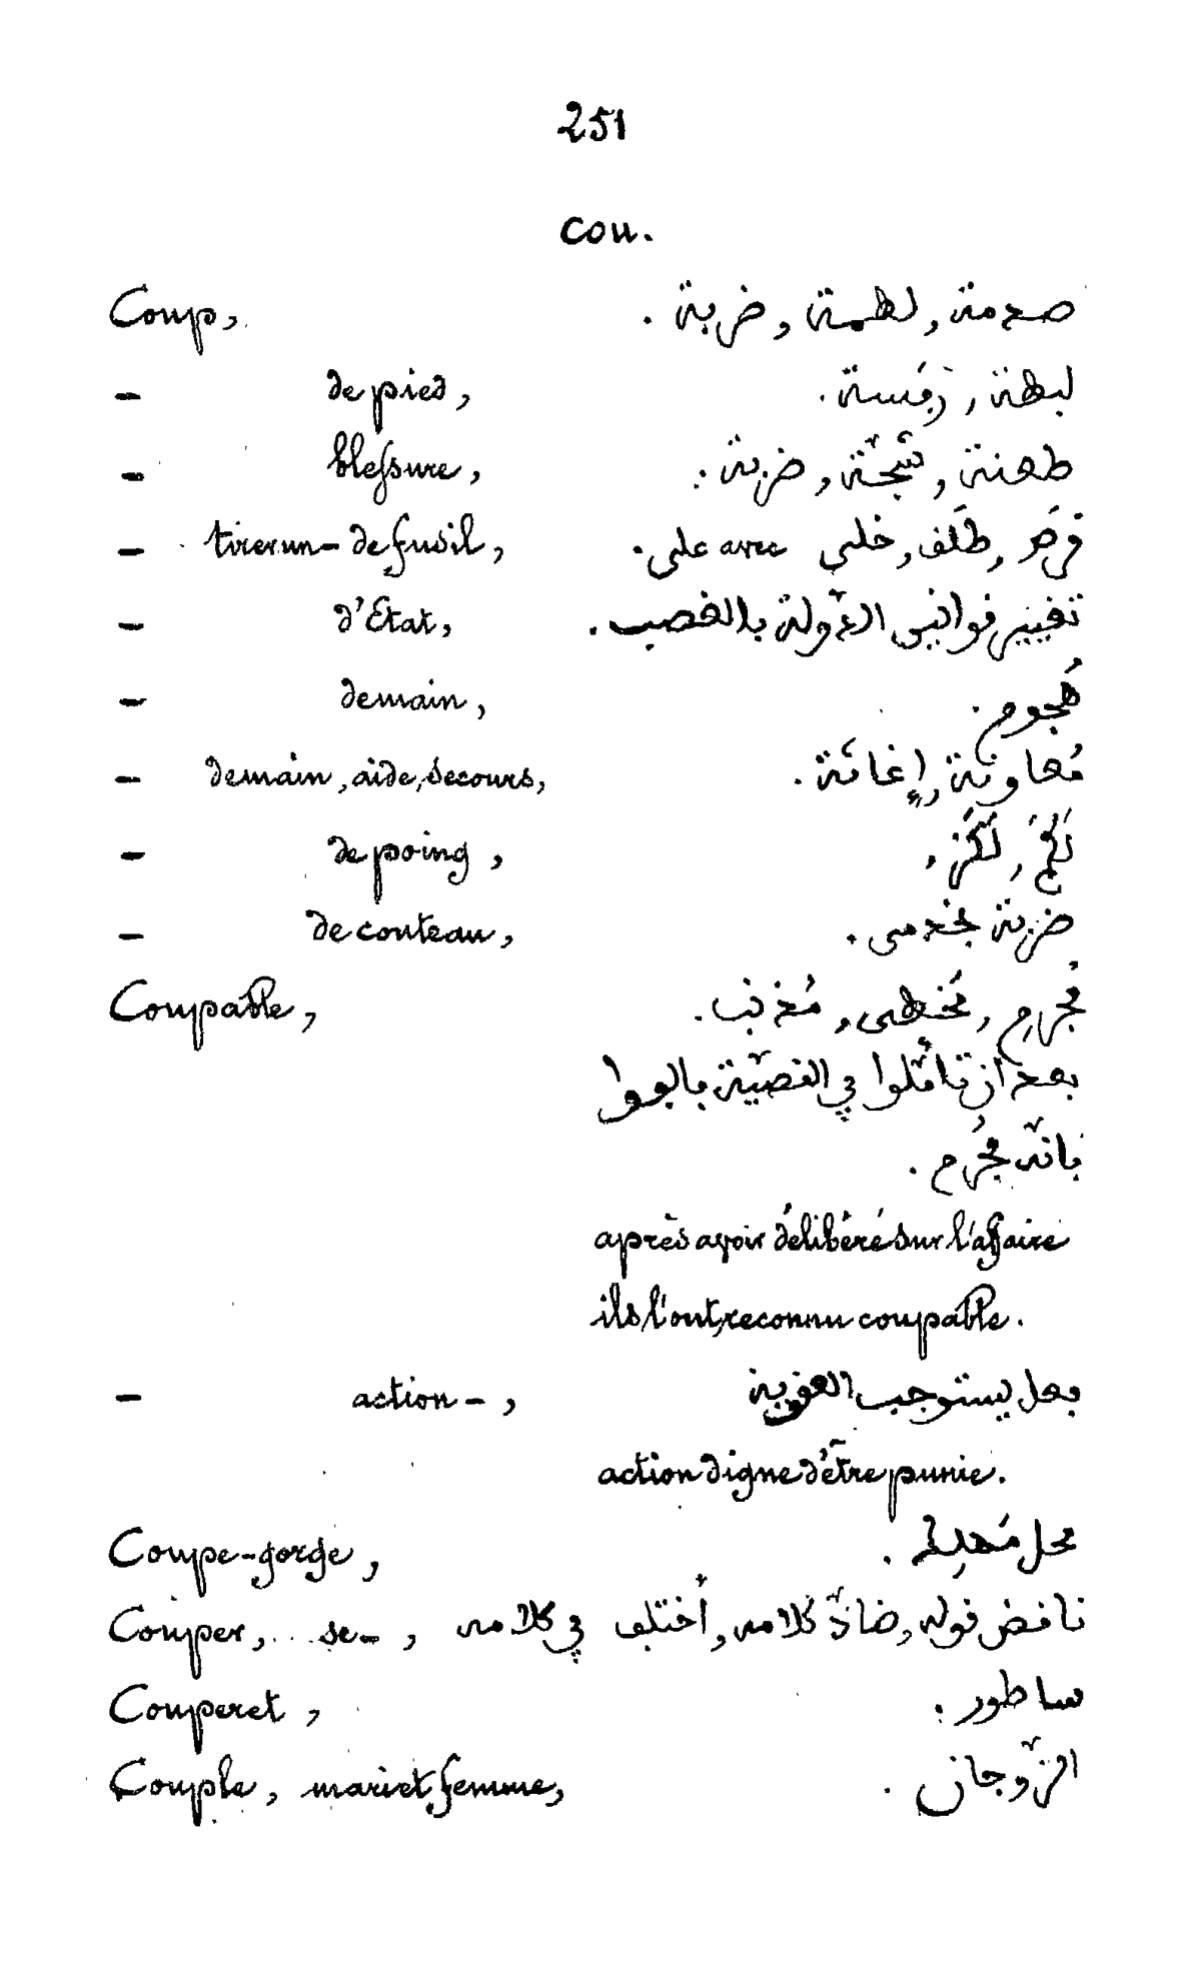 251
Cou.
Coup, صدمة, لطمة, ضربة.
— de pied, لبطة, رفسة.
— blessure, طعنة, شجّة, ضربة.
— tirer un — de fusil, فرص, طلف, خلى avec على.
— d'Etat, تغيير فوانين الدّولة بالغصب.
— de main, هُجوم.
— de main, aide, secours, مُعاونَة, إغاثَة.
— de poing, لَكَز,
— de couteau, ضربة بخدمى.
Coupable, مُجرِم, مُخطى, مُذنب.
بعد ان تأمّلوا في الفضيّة
بانّه مُجرم.
après avoir délibéré sur l'affaire
ils l'ont reconnu coupable.
— action —, بعل يستوجب العفوبة
action digne d'être punie.
Coupe-gorge, محل
Couper, se —, نافض فوله, ضادّ كلامه, أختلف في كلامه
Couperet, ساطور.
Couple, mari et femme, الزّوجان.